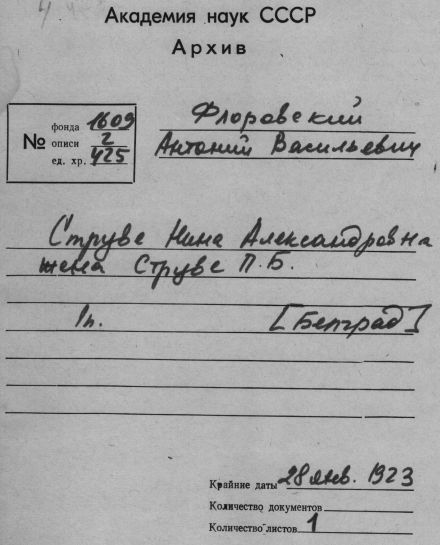 Академия наук СССР
Архив
№
фонда 1609
описи 2
ед. хр. 425
Флоровский
Антоний Васильевич
Струве Нина Александровна
жена Струве П.Б.
1п. [Белград]
Крайние даты 28 янв. 1923
Количество документов
Количество листов 1